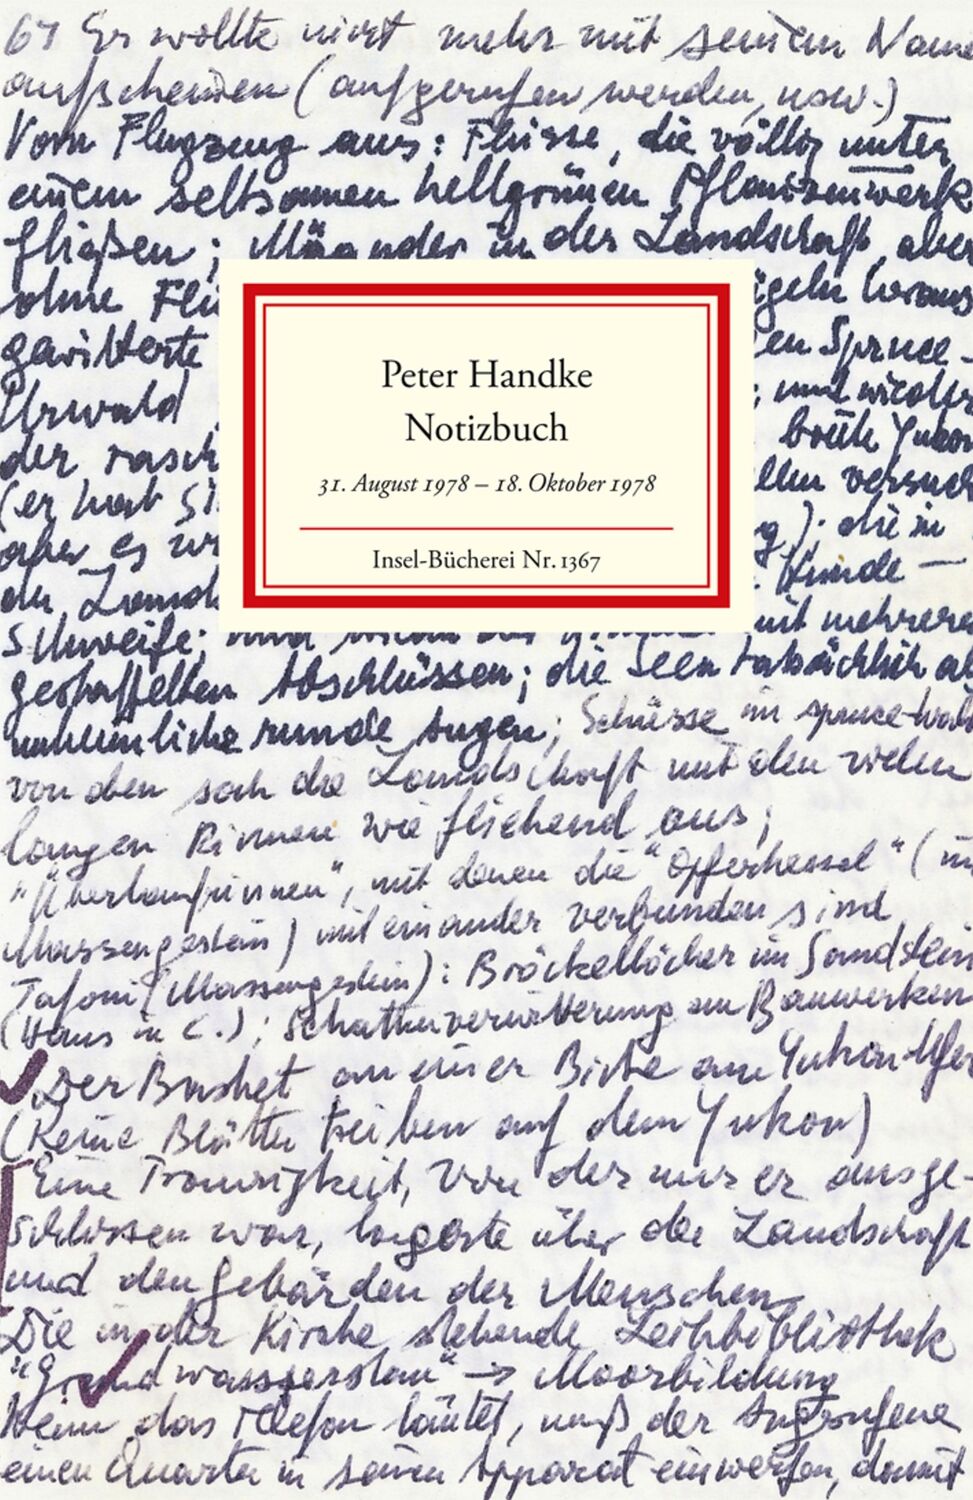 67 Er wollte nicht mehr mit seinem Name
aufscheinen (aufgerufen werden, usw.)
Vom Flugzeug aus: Flüsse, die völlig unter
einem seltsamen hellgrünen Pflanzenwerk
fließen; Mäander in der Landschaft, aber
ohne
gewitterte
Urwald
der rasch
(er hat
aber es
der
en Spruce-
und wieder
breite Yukon
ellen
; die in
Hunde —
mit mehrere
Peter Handke
Notizbuch
31. August 1978 – 18. Oktober 1978
Insel-Bücherei Nr. 1367
Schweife;
gestaffelten Abschlüssen; die Seen tatsächlich al
unheimliche runde Augen; Schüsse im spruce-wal
von oben sah die Landschaft mit den vielen
langen Rinnen wie fliehend aus;
"Überlaufrinnen", mit denen die "Opferkessel" (im
Massengestein) miteinander verbunden sind
Tafoni (Massengestein): Bröckellöcher im Sandstein
(Haus in C.); Schattenverwitterung an Bauwerken
Der Basket an einer Birke am Yukon-Ufer
(Keine Blätter treiben auf dem Yukon)
Eine Traurigkeit, von der nur er ausge-
schlossen war, lagerte über der Landschaft
und den Gebärden der Menschen
Die in der Kirche stehende Leihbibliothek
"Grundwasserstau" → Moorbildung
Wenn das Telefon läutet, muß der Angerufene
einen Quarter in seinen Apparat einwerfen, damit